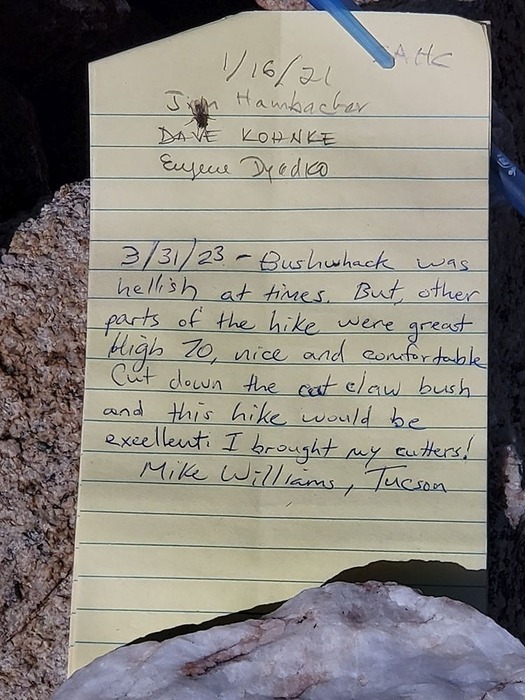 AHC
1/16/21
Jim Hambacher
DAVE KOHNKE
Eugene
3/31/23 - Bushwhack was
hellish at times. But, other
parts of the hike were great
High 70, nice and comfortable
Cut down the cat claw bush
and this hike would be
excellent. I brought my cutters!
Mike Williams, Tucson